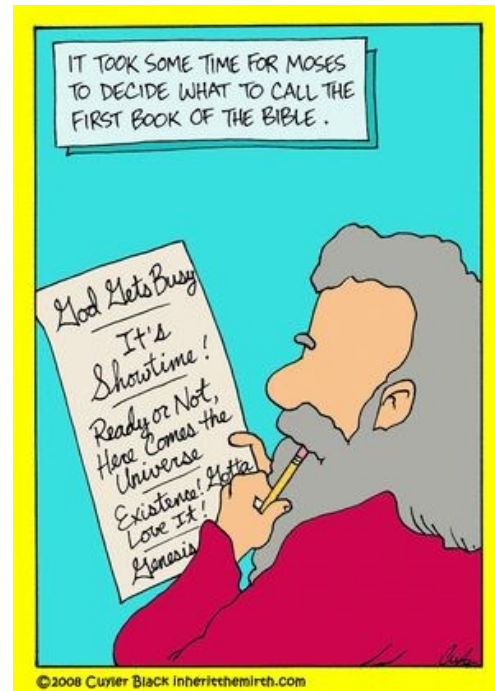 IT TOOK SOME TIME FOR MOSES
TO DECIDE WHAT TO CALL THE
FIRST BOOK OF THE BIBLE.
God Gets Busy
It's
Showtime!
Ready or Not,
Here Comes the
Universe
Existence! Gotta
Love It!
Genesis
©2008 Cuyler Black inheritthemirth.com